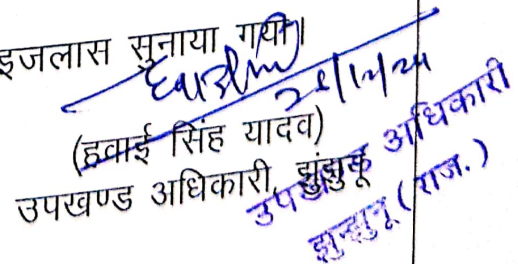 इजलास सुनाया गया।
(हवाई सिंह यादव)
उपखण्ड अधिकारी, झुंझुनू
उपखण्ड अधिकारी
झुन्झुनू (राज.)